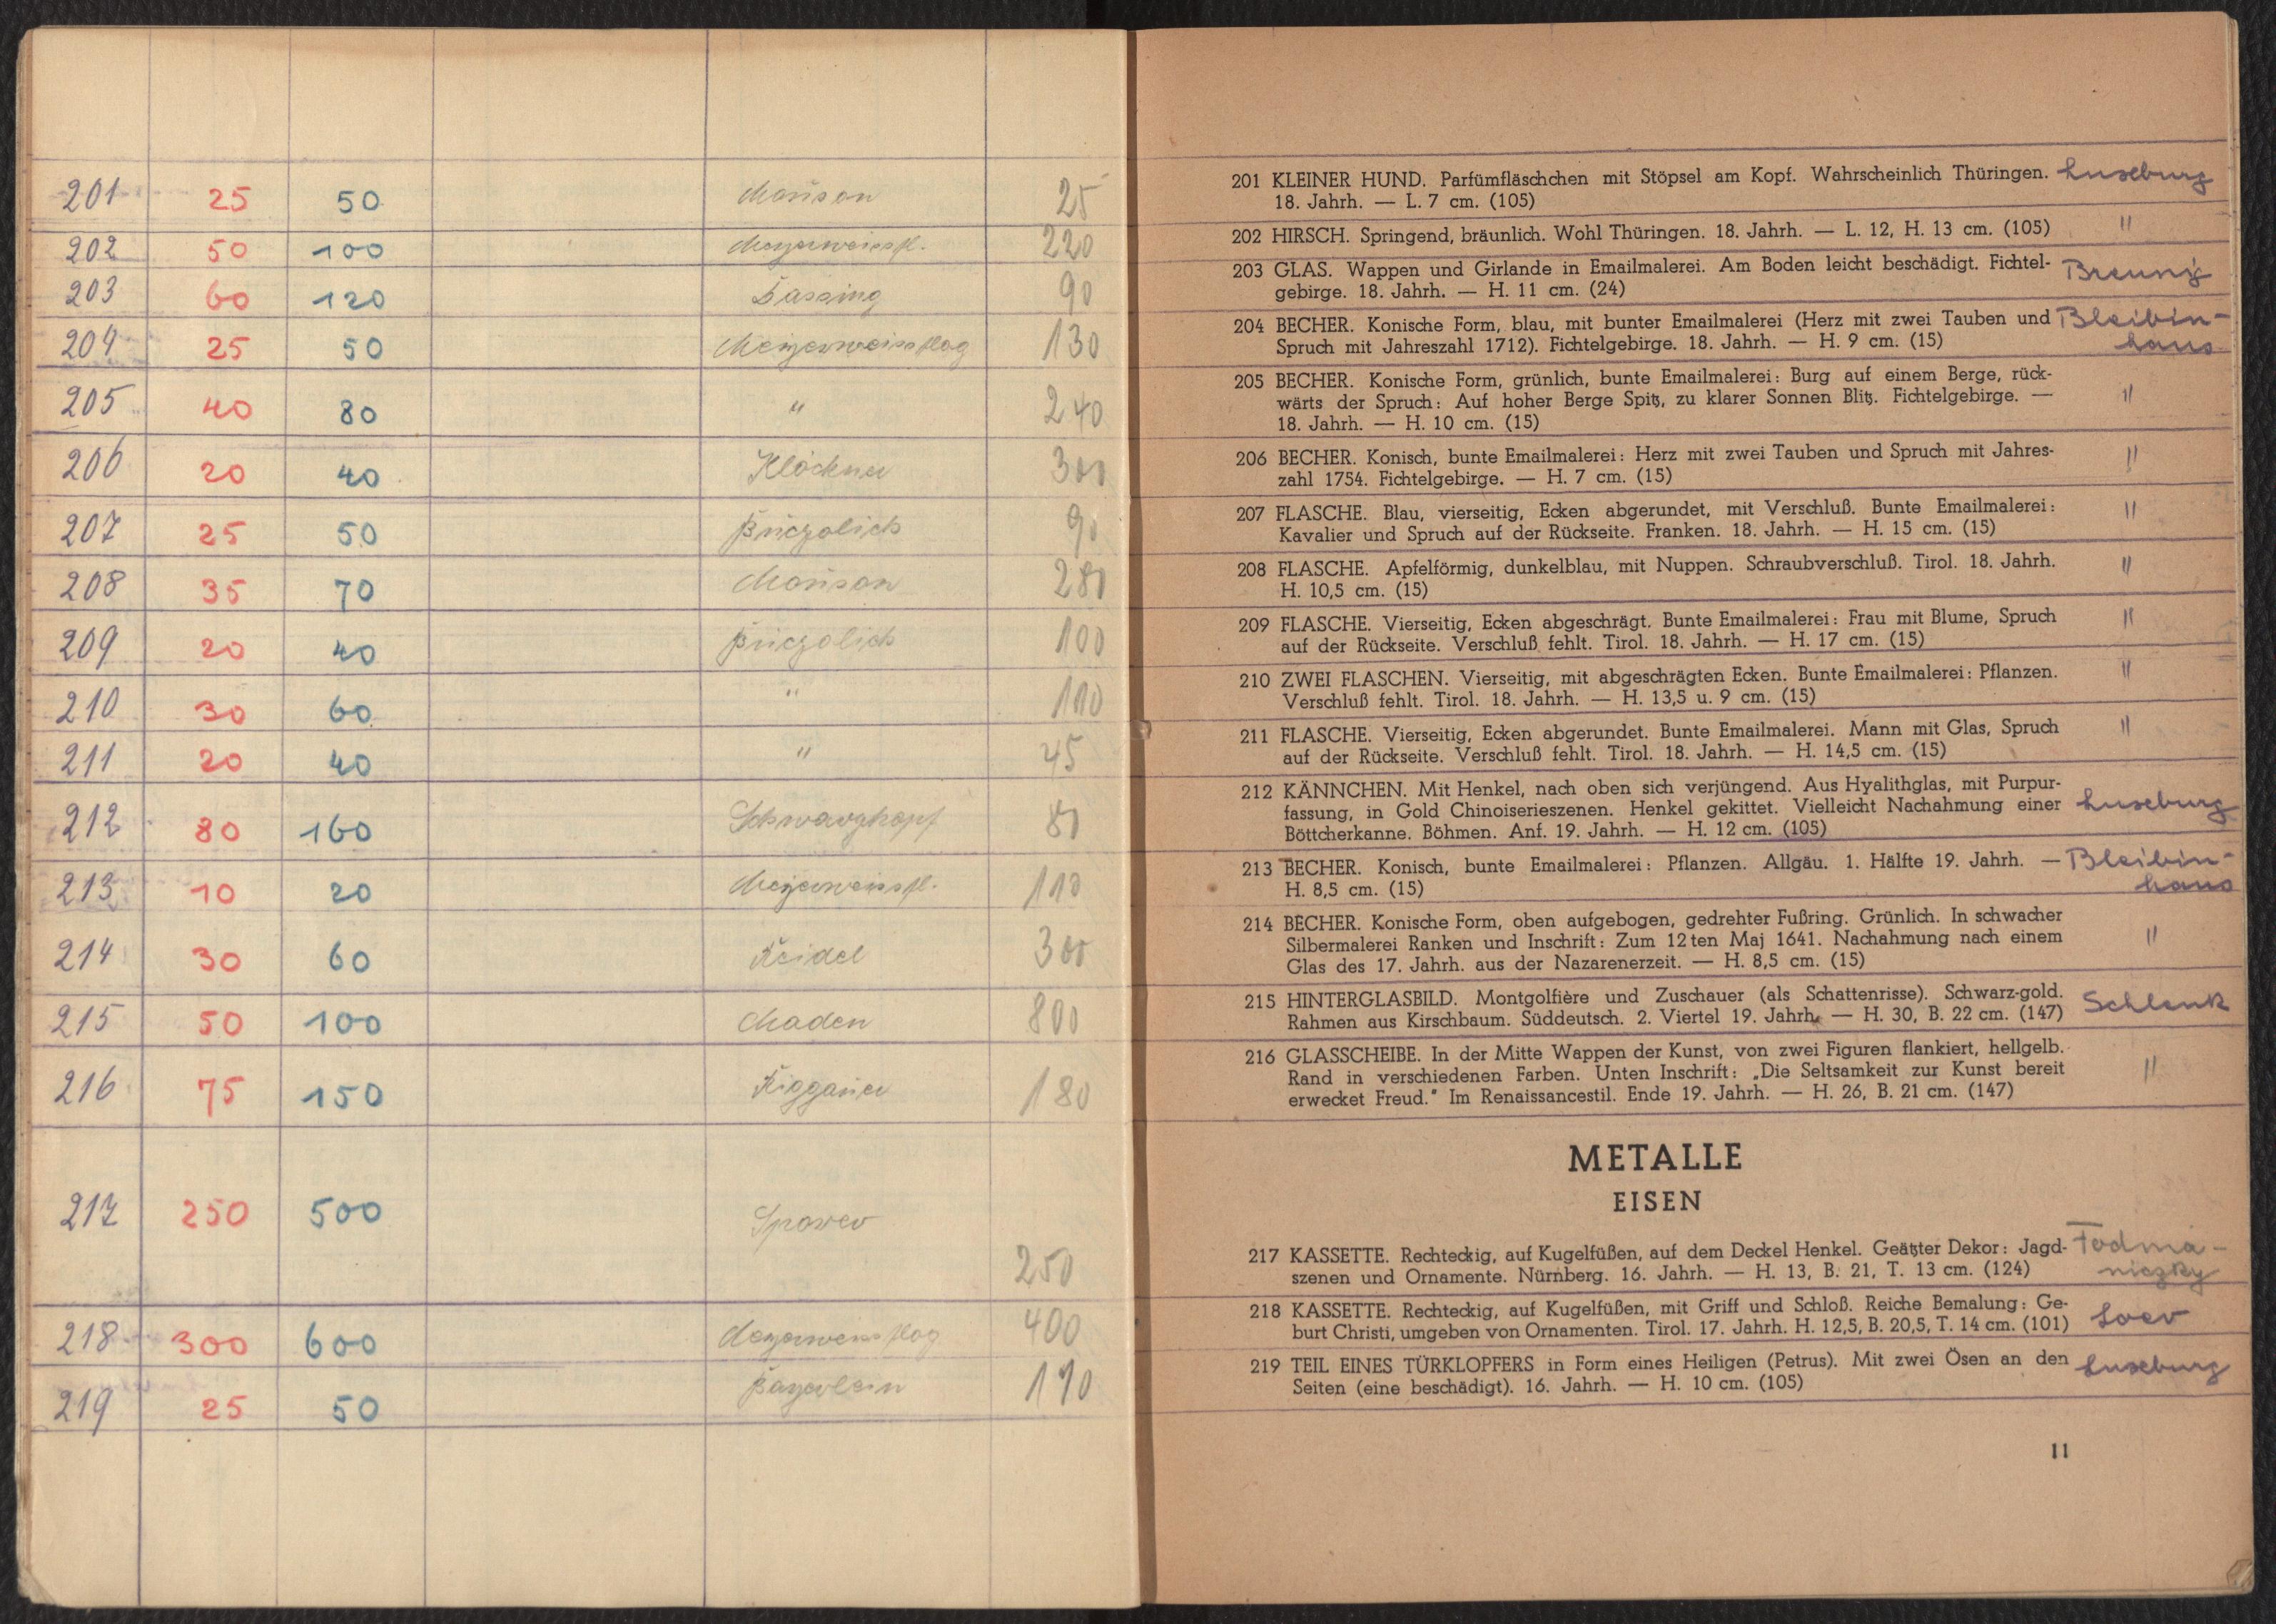 201 25 50 Morison 25
202 50 100 Meyerweissfl. 220
203 60 120 Bassing 90
204 25 50 Meyerweissflog 130
205 40 80 " 240
206 20 40 Klöckner 300
207 25 50 90
208 35 70 Morison 280
209 20 40 100
210 30 60 "
211 20 40 " 45
212 80 160 Schwarzkopf 80
213 10 20 Meyerweissfl. 110
214 30 60 Reidel 300
215 50 100 Maden 800
216 75 150 180
217 250 500 250
218 300 600 Meyerweissflog 400
219 25 50 Bayerlein 190
201 KLEINER HUND. Parfümfläschchen mit Stöpsel am Kopf. Wahrscheinlich Thüringen. Luseburg
18. Jahrh. — L. 7 cm. (105)
202 HIRSCH. Springend, bräunlich. Wohl Thüringen. 18. Jahrh. — L. 12, H. 13 cm. (105) "
203 GLAS. Wappen und Girlande in Emailmalerei. Am Boden leicht beschädigt. Fichtel- Breunig
gebirge. 18. Jahrh. — H. 11 cm. (24)
204 BECHER. Konische Form, blau, mit bunter Emailmalerei (Herz mit zwei Tauben und Bleibin-
Spruch mit Jahreszahl 1712). Fichtelgebirge. 18. Jahrh. — H. 9 cm. (15) haus
205 BECHER. Konische Form, grünlich, bunte Emailmalerei: Burg auf einem Berge, rück-
wärts der Spruch: Auf hoher Berge Spitz, zu klarer Sonnen Blitz. Fichtelgebirge. — "
18. Jahrh. — H. 10 cm. (15)
206 BECHER. Konisch, bunte Emailmalerei: Herz mit zwei Tauben und Spruch mit Jahres- "
zahl 1754. Fichtelgebirge. — H. 7 cm. (15)
207 FLASCHE. Blau, vierseitig, Ecken abgerundet, mit Verschluß. Bunte Emailmalerei: "
Kavalier und Spruch auf der Rückseite. Franken. 18. Jahrh. — H. 15 cm. (15)
208 FLASCHE. Apfelförmig, dunkelblau, mit Nuppen. Schraubverschluß. Tirol. 18. Jahrh. "
H. 10,5 cm. (15)
209 FLASCHE. Vierseitig, Ecken abgeschrägt. Bunte Emailmalerei: Frau mit Blume, Spruch "
auf der Rückseite. Verschluß fehlt. Tirol. 18. Jahrh. — H. 17 cm. (15)
210 ZWEI FLASCHEN. Vierseitig, mit abgeschrägten Ecken. Bunte Emailmalerei: Pflanzen. "
Verschluß fehlt. Tirol. 18. Jahrh. — H. 13,5 u. 9 cm. (15)
211 FLASCHE. Vierseitig, Ecken abgerundet. Bunte Emailmalerei. Mann mit Glas, Spruch "
auf der Rückseite. Verschluß fehlt. Tirol. 18. Jahrh. — H. 14,5 cm. (15)
212 KÄNNCHEN. Mit Henkel, nach oben sich verjüngend. Aus Hyalithglas, mit Purpur-
fassung, in Gold Chinoiserieszenen. Henkel gekittet. Vielleicht Nachahmung einer Luseburg
Böttcherkanne. Böhmen. Anf. 19. Jahrh. — H. 12 cm. (105)
213 BECHER. Konisch, bunte Emailmalerei: Pflanzen. Allgäu. 1. Hälfte 19. Jahrh. — Bleibin-
H. 8,5 cm. (15) haus
214 BECHER. Konische Form, oben aufgebogen, gedrehter Fußring. Grünlich. In schwacher
Silbermalerei Ranken und Inschrift: Zum 12ten Maj 1641. Nachahmung nach einem "
Glas des 17. Jahrh. aus der Nazarenerzeit. — H. 8,5 cm. (15)
215 HINTERGLASBILD. Montgolfière und Zuschauer (als Schattenrisse). Schwarz-gold. Schlenk
Rahmen aus Kirschbaum. Süddeutsch. 2. Viertel 19. Jahrh. — H. 30, B. 22 cm. (147)
216 GLASSCHEIBE. In der Mitte Wappen der Kunst, von zwei Figuren flankiert, hellgelb.
Rand in verschiedenen Farben. Unten Inschrift: „Die Seltsamkeit zur Kunst bereit "
erwecket Freud." Im Renaissancestil. Ende 19. Jahrh. — H. 26, B. 21 cm. (147)
METALLE
EISEN
217 KASSETTE. Rechteckig, auf Kugelfüßen, auf dem Deckel Henkel. Geätzter Dekor: Jagd- Fodma-
szenen und Ornamente. Nürnberg. 16. Jahrh. — H. 13, B. 21, T. 13 cm. (124) niczky
218 KASSETTE. Rechteckig, auf Kugelfüßen, mit Griff und Schloß. Reiche Bemalung: Ge- Loev
burt Christi, umgeben von Ornamenten. Tirol. 17. Jahrh. H. 12,5, B. 20,5, T. 14 cm. (101)
219 TEIL EINES TÜRKLOPFERS in Form eines Heiligen (Petrus). Mit zwei Ösen an den Luseburg
Seiten (eine beschädigt). 16. Jahrh. — H. 10 cm. (105)
11